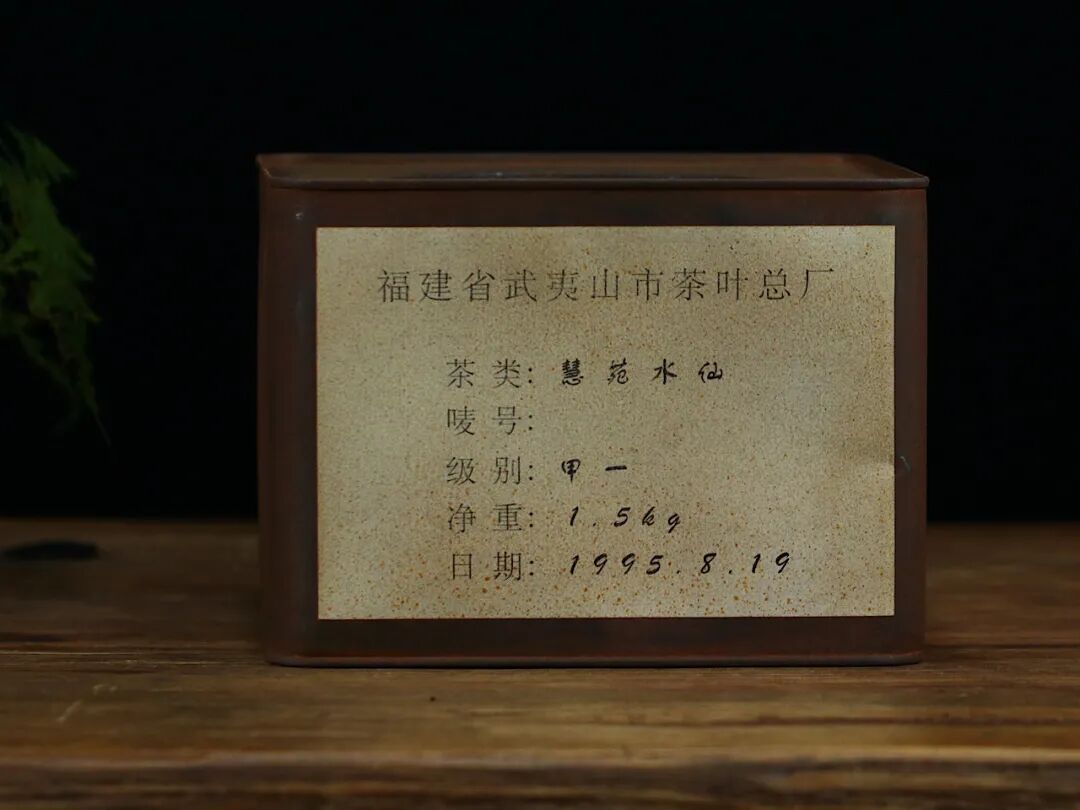 福建省武夷山市茶叶总厂
茶类: 慧苑水仙
唛号:
级别: 甲一
净重: 1.5kg
日期: 1995.8.19